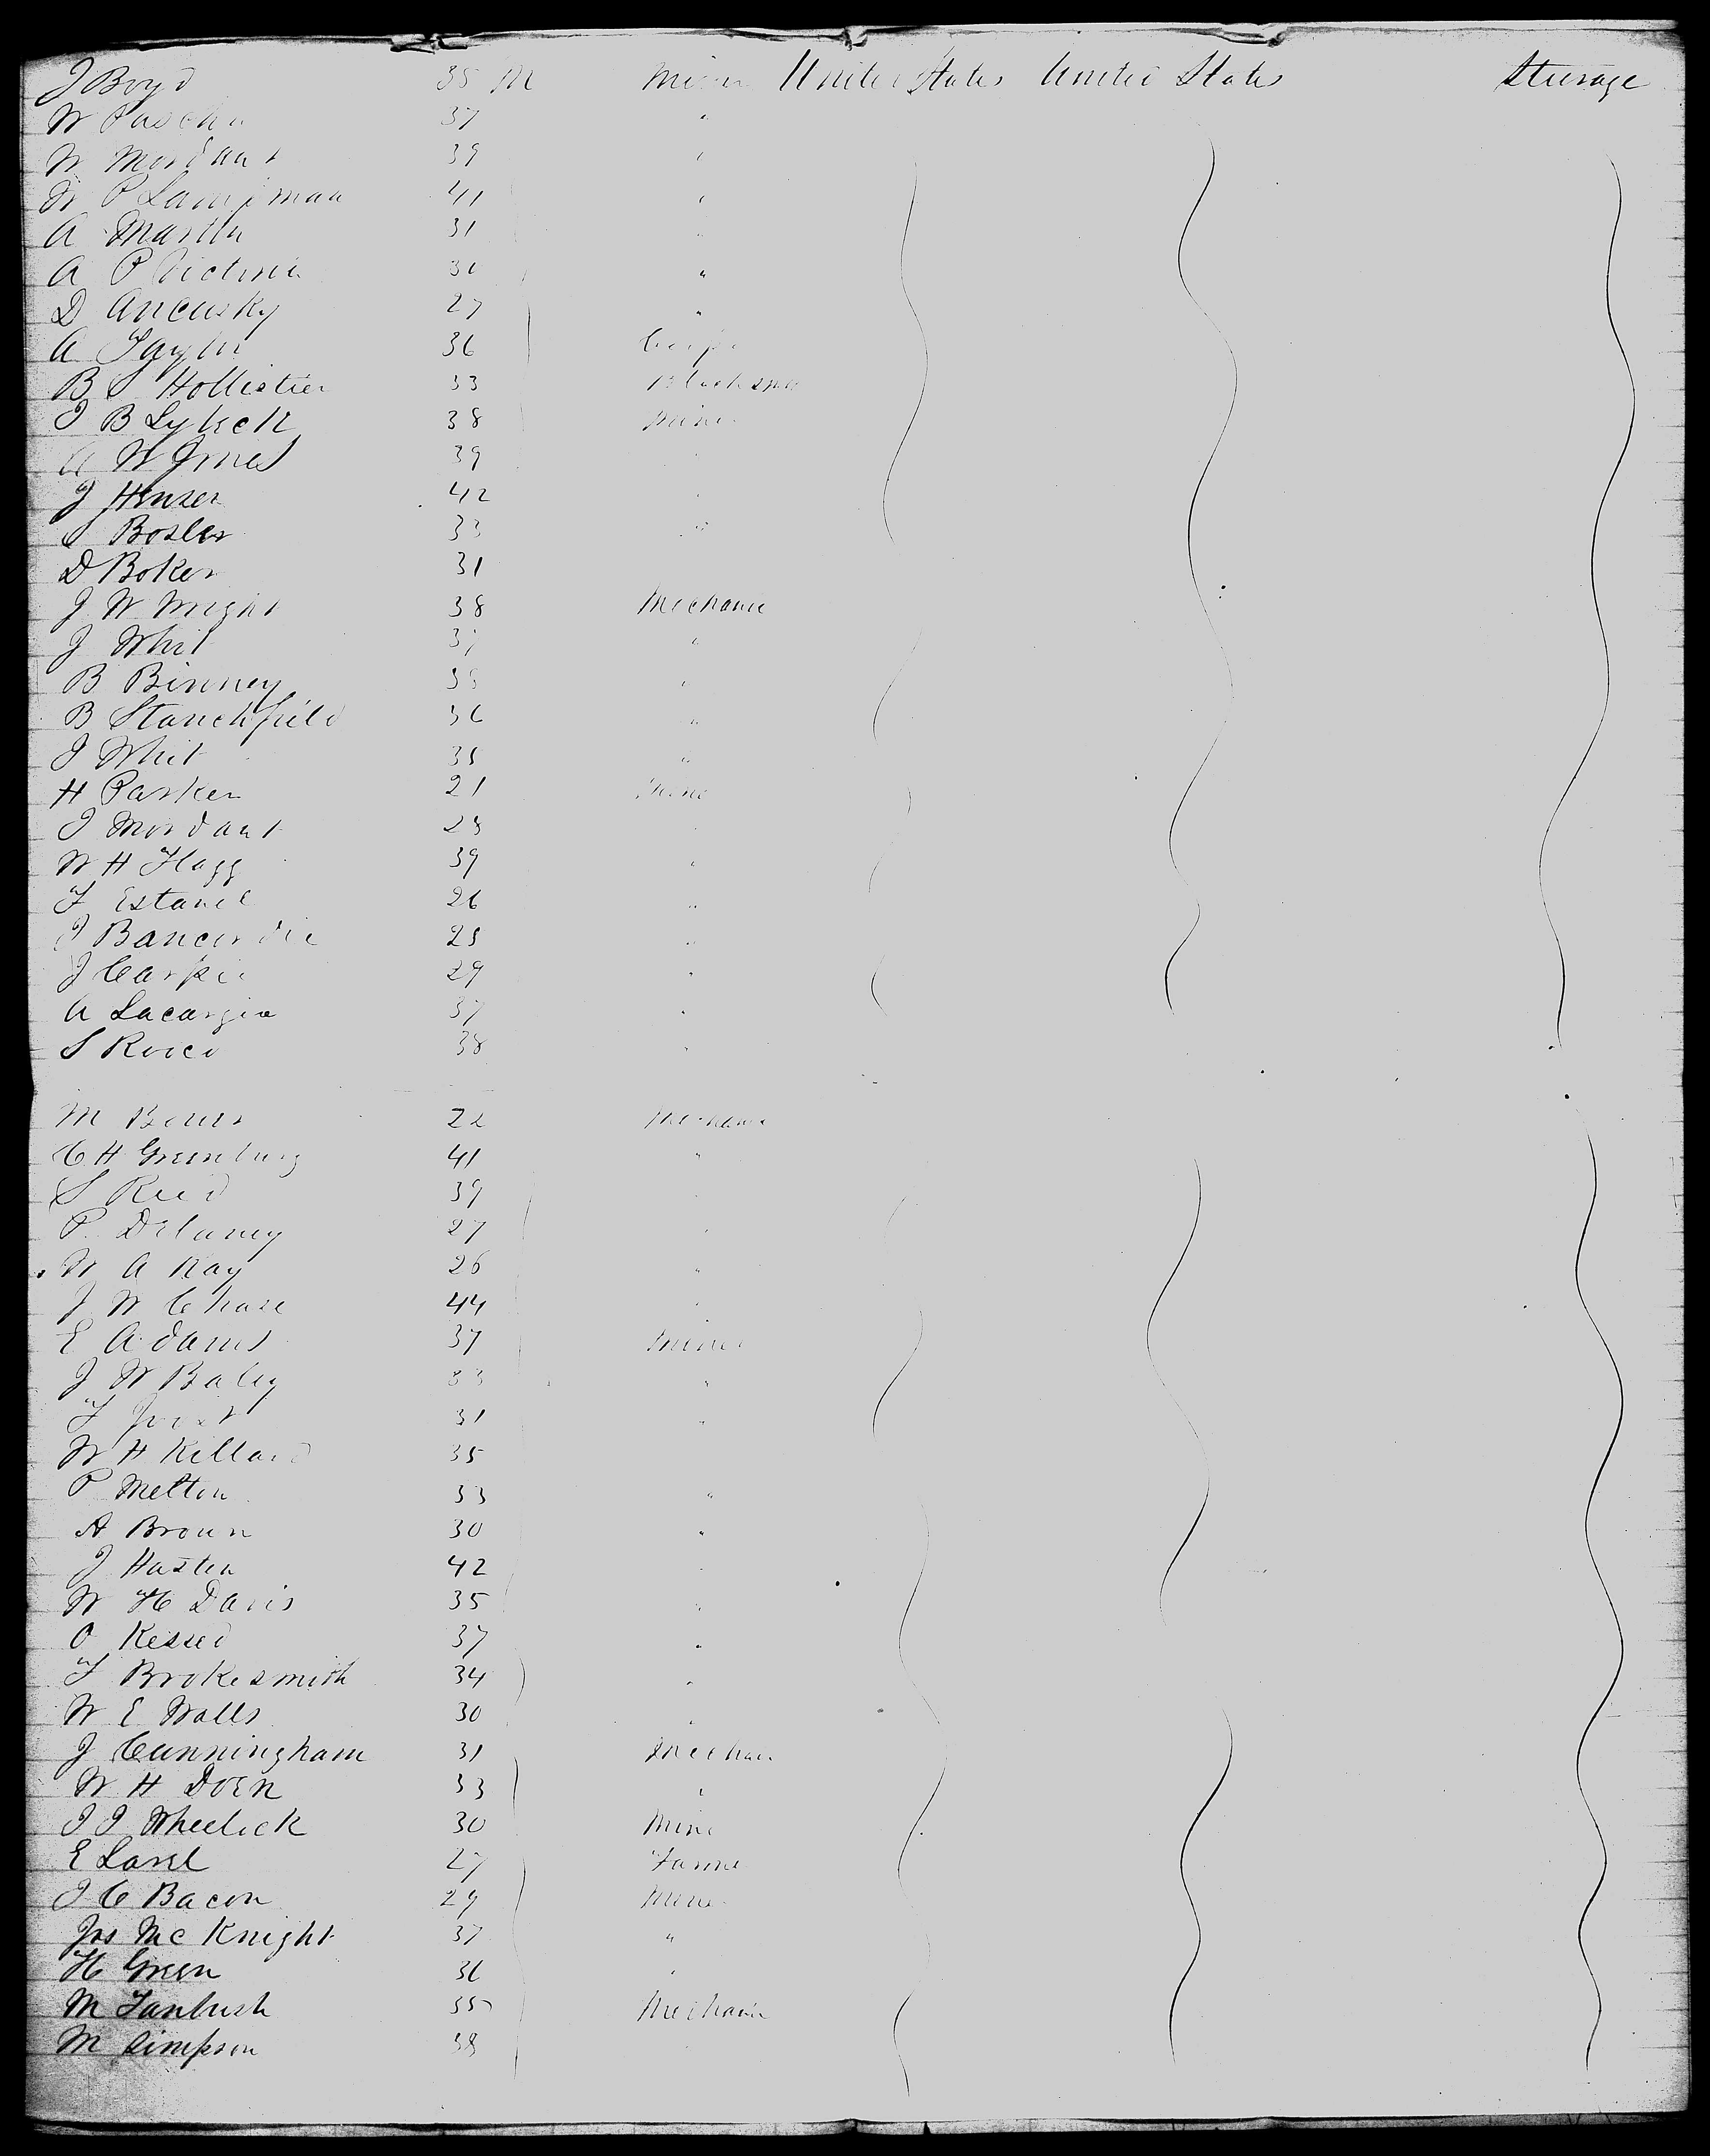 J Boyd 35 M Miner United States United States Steerage
W 37 "
W Mordaut 39 "
W P 41 "
A Martin 31 "
A P 30 "
D Ancusky 27 "
A Taylor 36 Carp
B S Hollistier 33 Blacksm
J B Lyheck 38 Mine
A W Jones 39
J Henser 42
S Bosler 33 "
D Boker 31
J W Wright 38 Mechanic
J Whit 37 "
B Binney 35 "
B Stanchfield 36 "
J Whit 35 "
H Parker 21 Mine
J Mordaut 28
W H Flagg 39 "
F Estanie 26 "
J 25 "
J Carpi 29 "
A Lacargia 37 "
S Rocco 38 "
M 22 Mechanic
C H Greenburg 41 "
S Reed 39
P. Delaney 27 "
W A Ray 26 "
J W Chase 44 "
E Adams 37 Miner
J W Baley 33 "
F 31 "
W H Killard 35
P Melton 33 "
A Brown 30 "
J Hasten 42
W H Davis 35 "
O Kessed 37 "
F Brokesmith 34 "
W E Walls 30 "
J Cunningham 31 Mechan
W H Doen 33 "
J J Wheelick 30 Mine
E Lard 27 Farme
J C Bacon 29 Mine
Jos McKnight 37 "
H Green 36 "
M 35 Mechanic
M Simpson 38